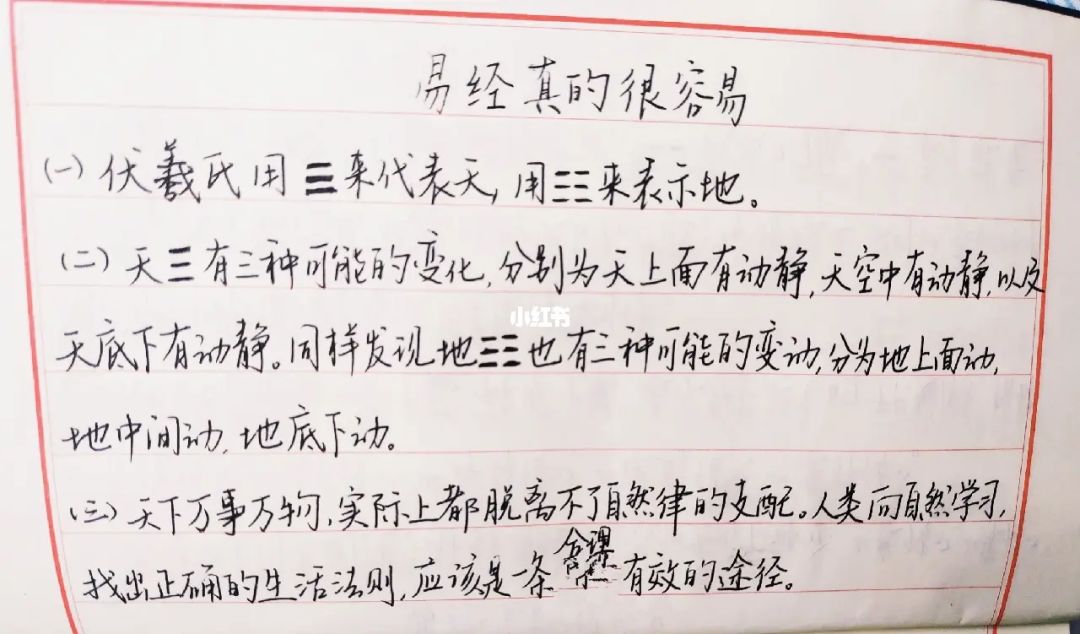 易经真的很容易
(一)伏羲氏用☰来代表天,用☷来表示地。
(二)天☰有三种可能的变化,分别为天上面有动静,天空中有动静,以及
天底下有动静。同样发现地☷也有三种可能的变动,分为地上面动,
地中间动,地底下动。
(三)天下万事万物,实际上都脱离不了自然律的支配。人类向自然学习,
找出正确的生活法则,应该是一条 有效的途径。
小红书